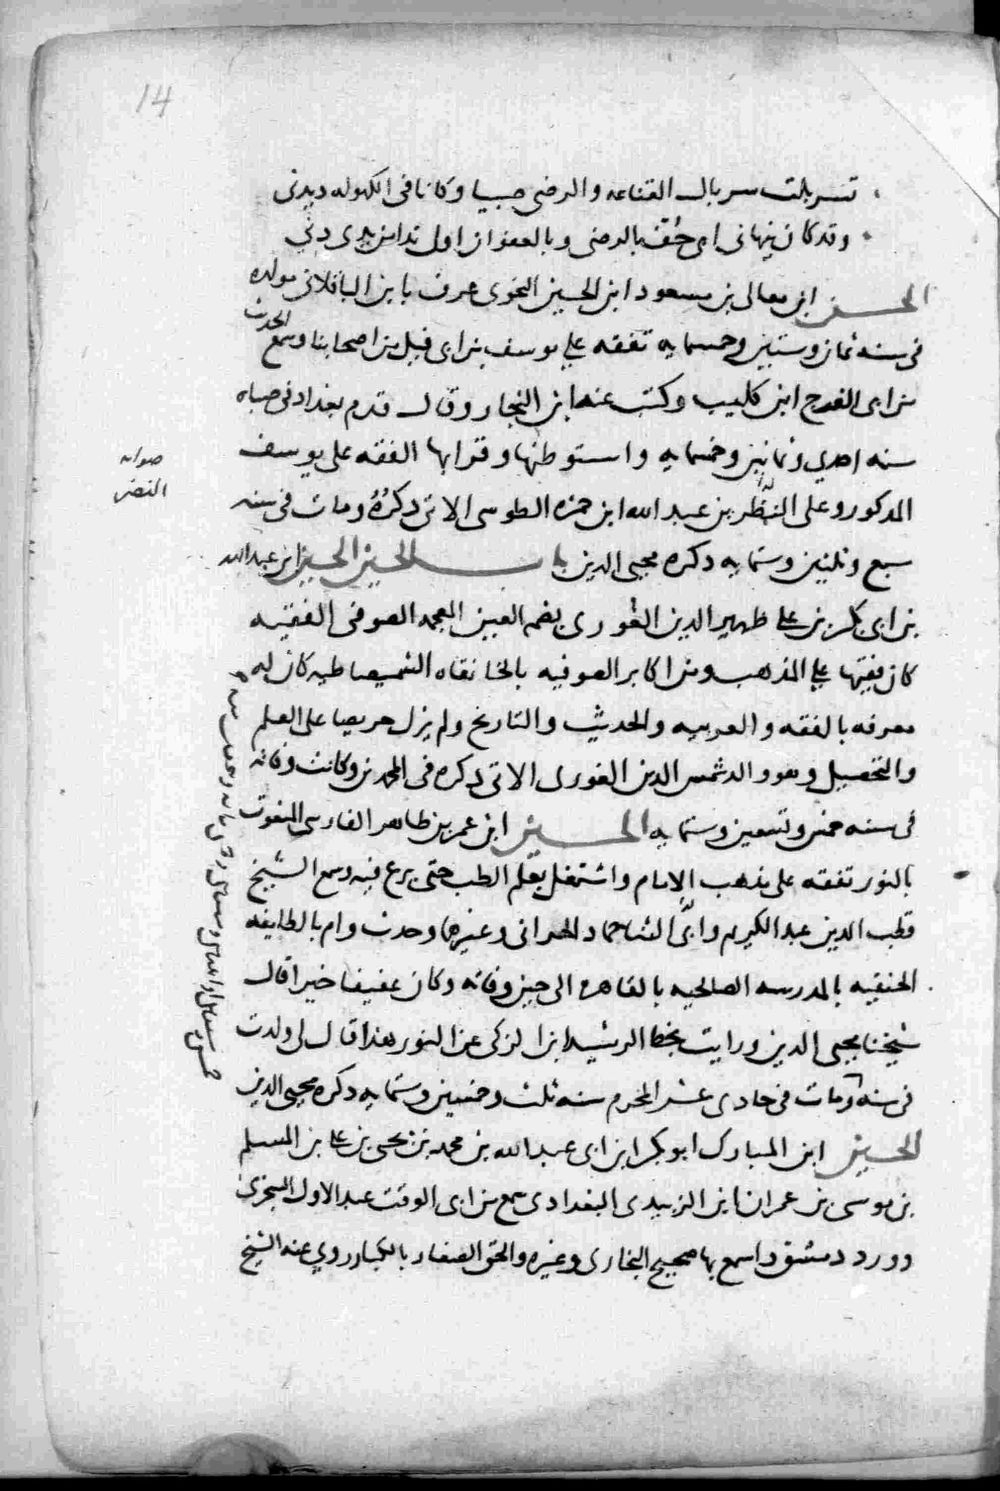 14
تسربلت سربال القناعه والرضى صبيا وكانا فى الكهوله ديدنى
وقد كان ينهانى ابى حُفّ بالرضى وبالعفو ان اولى ندا من يدى دني
الحسن ابن معالى بن مسعود ابن الحسين النحوى عرف بابن الباقلانى مولده
فى سنه ثمان وستين وخمسمايه تفقه على يوسف من اى قبل من اصحابنا وسمع الحديث
من ابى الفرج ابن كليب وكتب عنه ابن النجار وقال قدم بغداد فى صباه
سنه احدى وثمانين وخمسمايه واستوطنها وقرا بها الفقه على يوسف
المدكور وعلى النظر بن عبد الله ابن حمزه الطوسى الاتى دكره ومات فى سنه
صوابه
النضر
سبع وثلثين وستمايه دكره محيى الدين باب الحسين الحسين ابن عبد الله
بن ابى بكر بن على ظهير الدين الغورى بضم الغين المعجمه الصوفى الفقيه
كان فقيها على المذهب ومن اكابر الصوفيه بالخانقاه الشميصاطيه كان له
معرفه بالفقه والعربيه والحديث والتاريخ ولم يزل حريصا على العلم
والتحصيل وهو والد شمس الدين الغورى الاتى دكره فى المحمدين وكانت وفاته
فى سنه خمس وتسعين وستمايه الحسين ابن عمر بن طاهر الفارسى المنعوت
بالنور تفقه على مذهب الامام واشتغل بعلم الطب حتى برع فيه وسمع الشيخ
قطب الدين عبد الكريم وابى الثنا حماد الحرانى وغيرهما وحدث وام بالطايفه
الحنفيه بالمدرسه الصالحيه بالقاهره الى حين وفاته وكان عفيفا خيرا قال
شيخنا محيى الدين ورايت بخط الرشيد ابن الزكى عن النور هذا قال لى ولدت
فى سنه ومات فى حادى عشر المحرم سنه ثلث وخمسين وستمايه دكره محيى الدين
الحسين ابن المبارك ابو بكر ابن ابى عبد الله بن محمد بن يحيى بن على بن المسلم
بن موسى بن عمران ابن الزبيدى البغدادى سمع من ابى الوقت عبد الاول السجزى
وورد دمشق واسمع بها صحيح البخارى وغيره والحق الصغار بالكبار روي عنه الشيخ